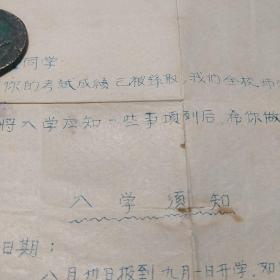 同学
你的考试成绩已被录取，我们全校师
将入学应知一些事项列后，希你做
入学须知
日期：
八月卅日报到九月一日开学，如